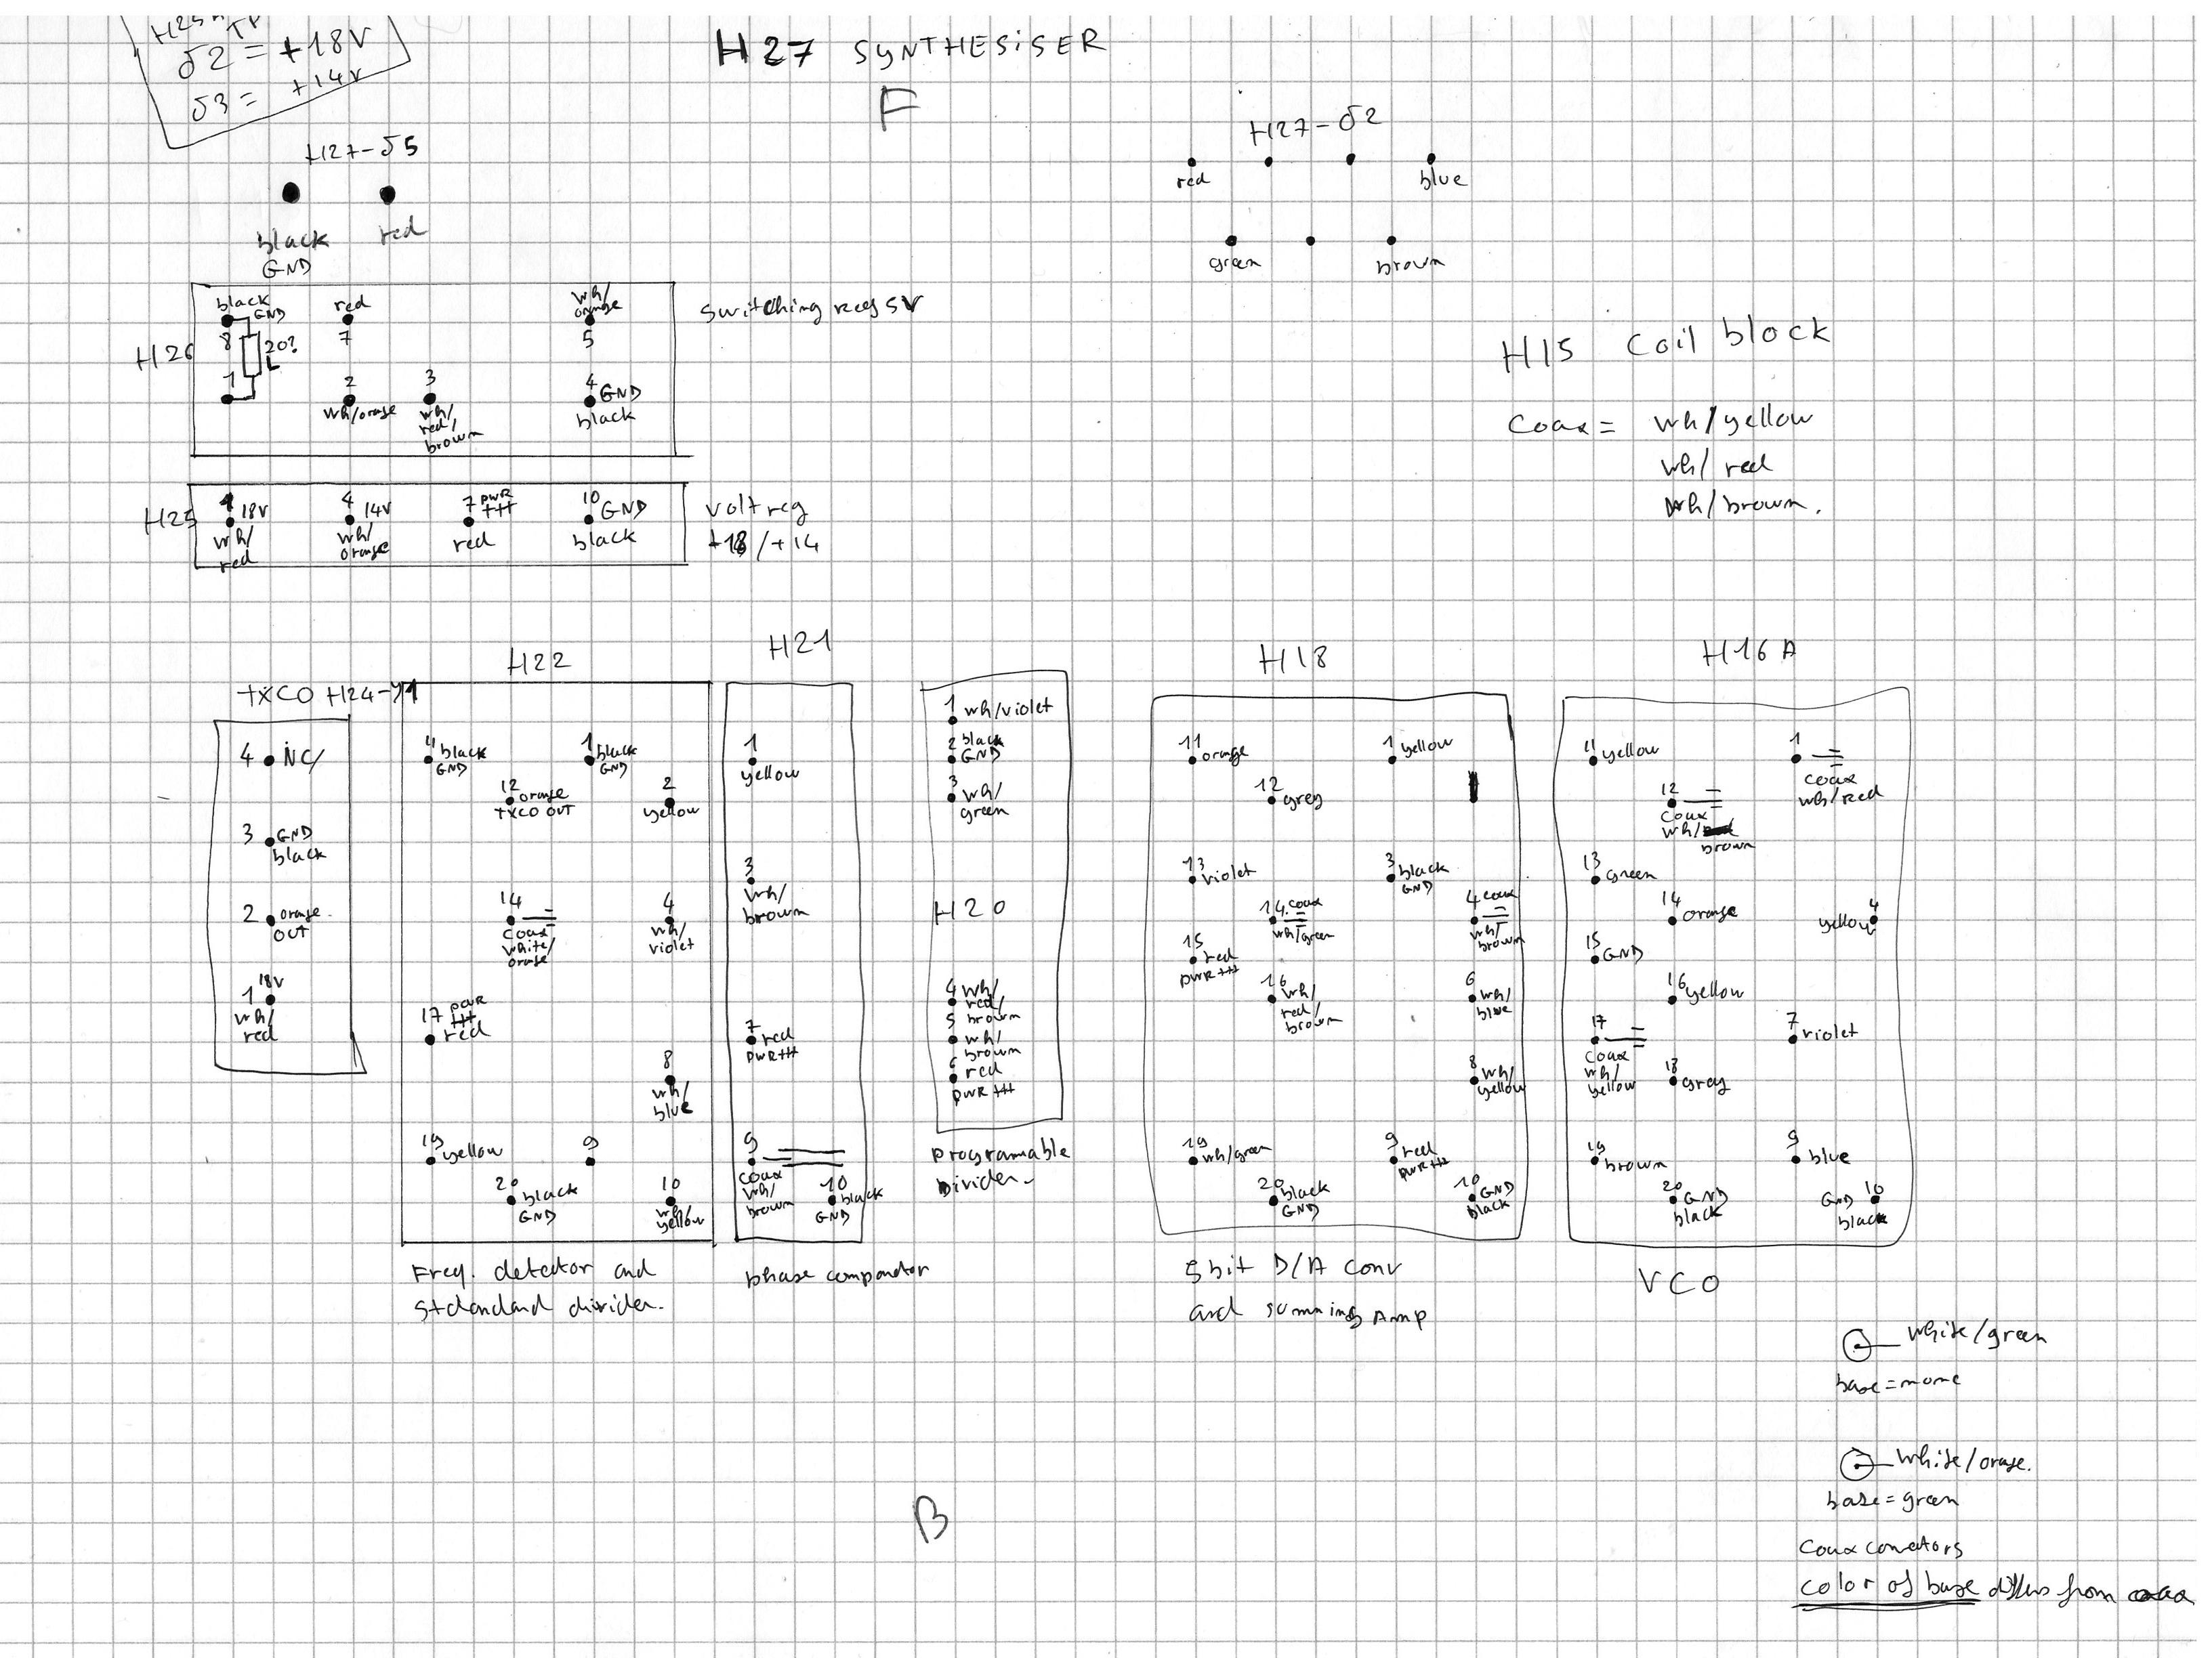 H25
TP
J2 = +18V
J3 = +14V
H27 SYNTHESiSER
F
H27-J5
black
GND
red
H27-J2
red
blue
green
brown
H26
black
GND
8
20?
1
red
7
wh/
orange
5
2
wh/orange
3
wh/
red/
brown
4 GND
black
Switching reg 5V
H15 Coil block
Coax = wh/yellow
wh/ red
wh/brown.
H25
1 18V
wh/
red
4 14V
wh/
orange
7 PWR
+++
red
10 GND
black
Volt reg
+18/+14
TXCO H24-Y1
4 NC/
3 GND
black
2 orange
OUT
18V
1
wh/
red
H22
11 black
GND
1 black
GND
12 orange
TXCO OUT
2
yellow
14
coax
white/
orange
4
wh/
violet
17 PWR
+++
red
8
wh/
blue
19 yellow
9
20 black
GND
10
wh/
yellow
Freq. detector and
stdandand divider.
H21
1
yellow
3
wh/
brown
7 red
PWR+++
9
coax
wh/
brown
10 black
GND
phase compandor
H20
1 wh/violet
2 black
GND
3 wh/
green
4 wh/
red/
brown
5 wh/
brown
6 red
PWR +++
programable
Divider-
H18
11
orange
1 yellow
12 grey
13
violet
3 black
GND
14 coax
wh/green
4 coax
wh/
brown
15 red
PWR +++
16 wh/
red/
brown
6 wh/
blue
8 wh/
yellow
19 wh/green
9 red
PWR +++
20 black
GND
10 GND
black
5bit D/A conv
and summing Amp
H16A
11 yellow
1
coax
wh/red
12
coax
wh/
brown
13 green
14
orange
4
yellow
15 GND
16 yellow
17
coax
wh/
yellow
7 violet
18 gray
19
brown
9
blue
20 GND
black
GND 10
black
VCO
white/green
base = none
white/orange.
base = green
Coax conectors
color of base differs from coax
B